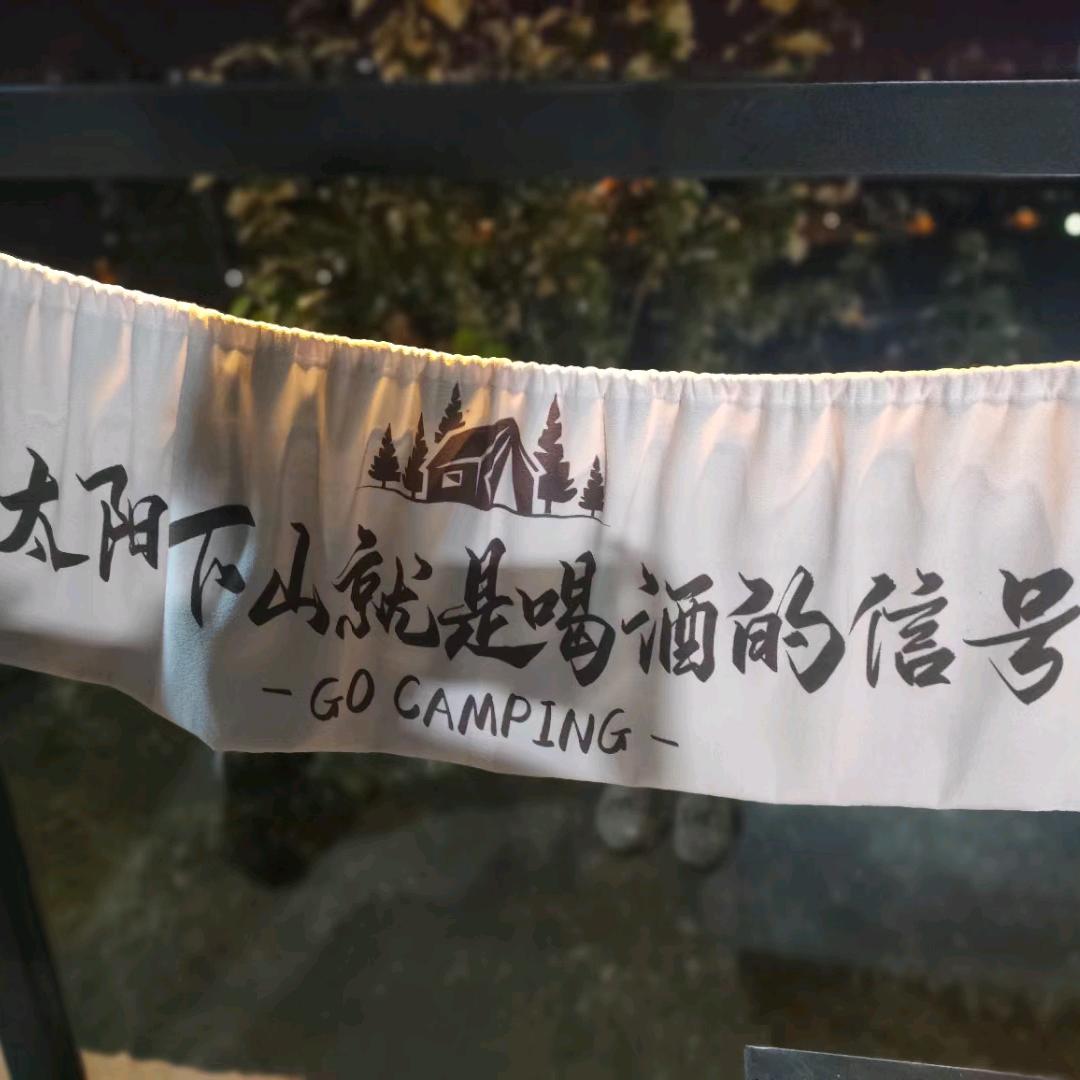 太阳下山就是喝酒的信号
- GO CAMPING -